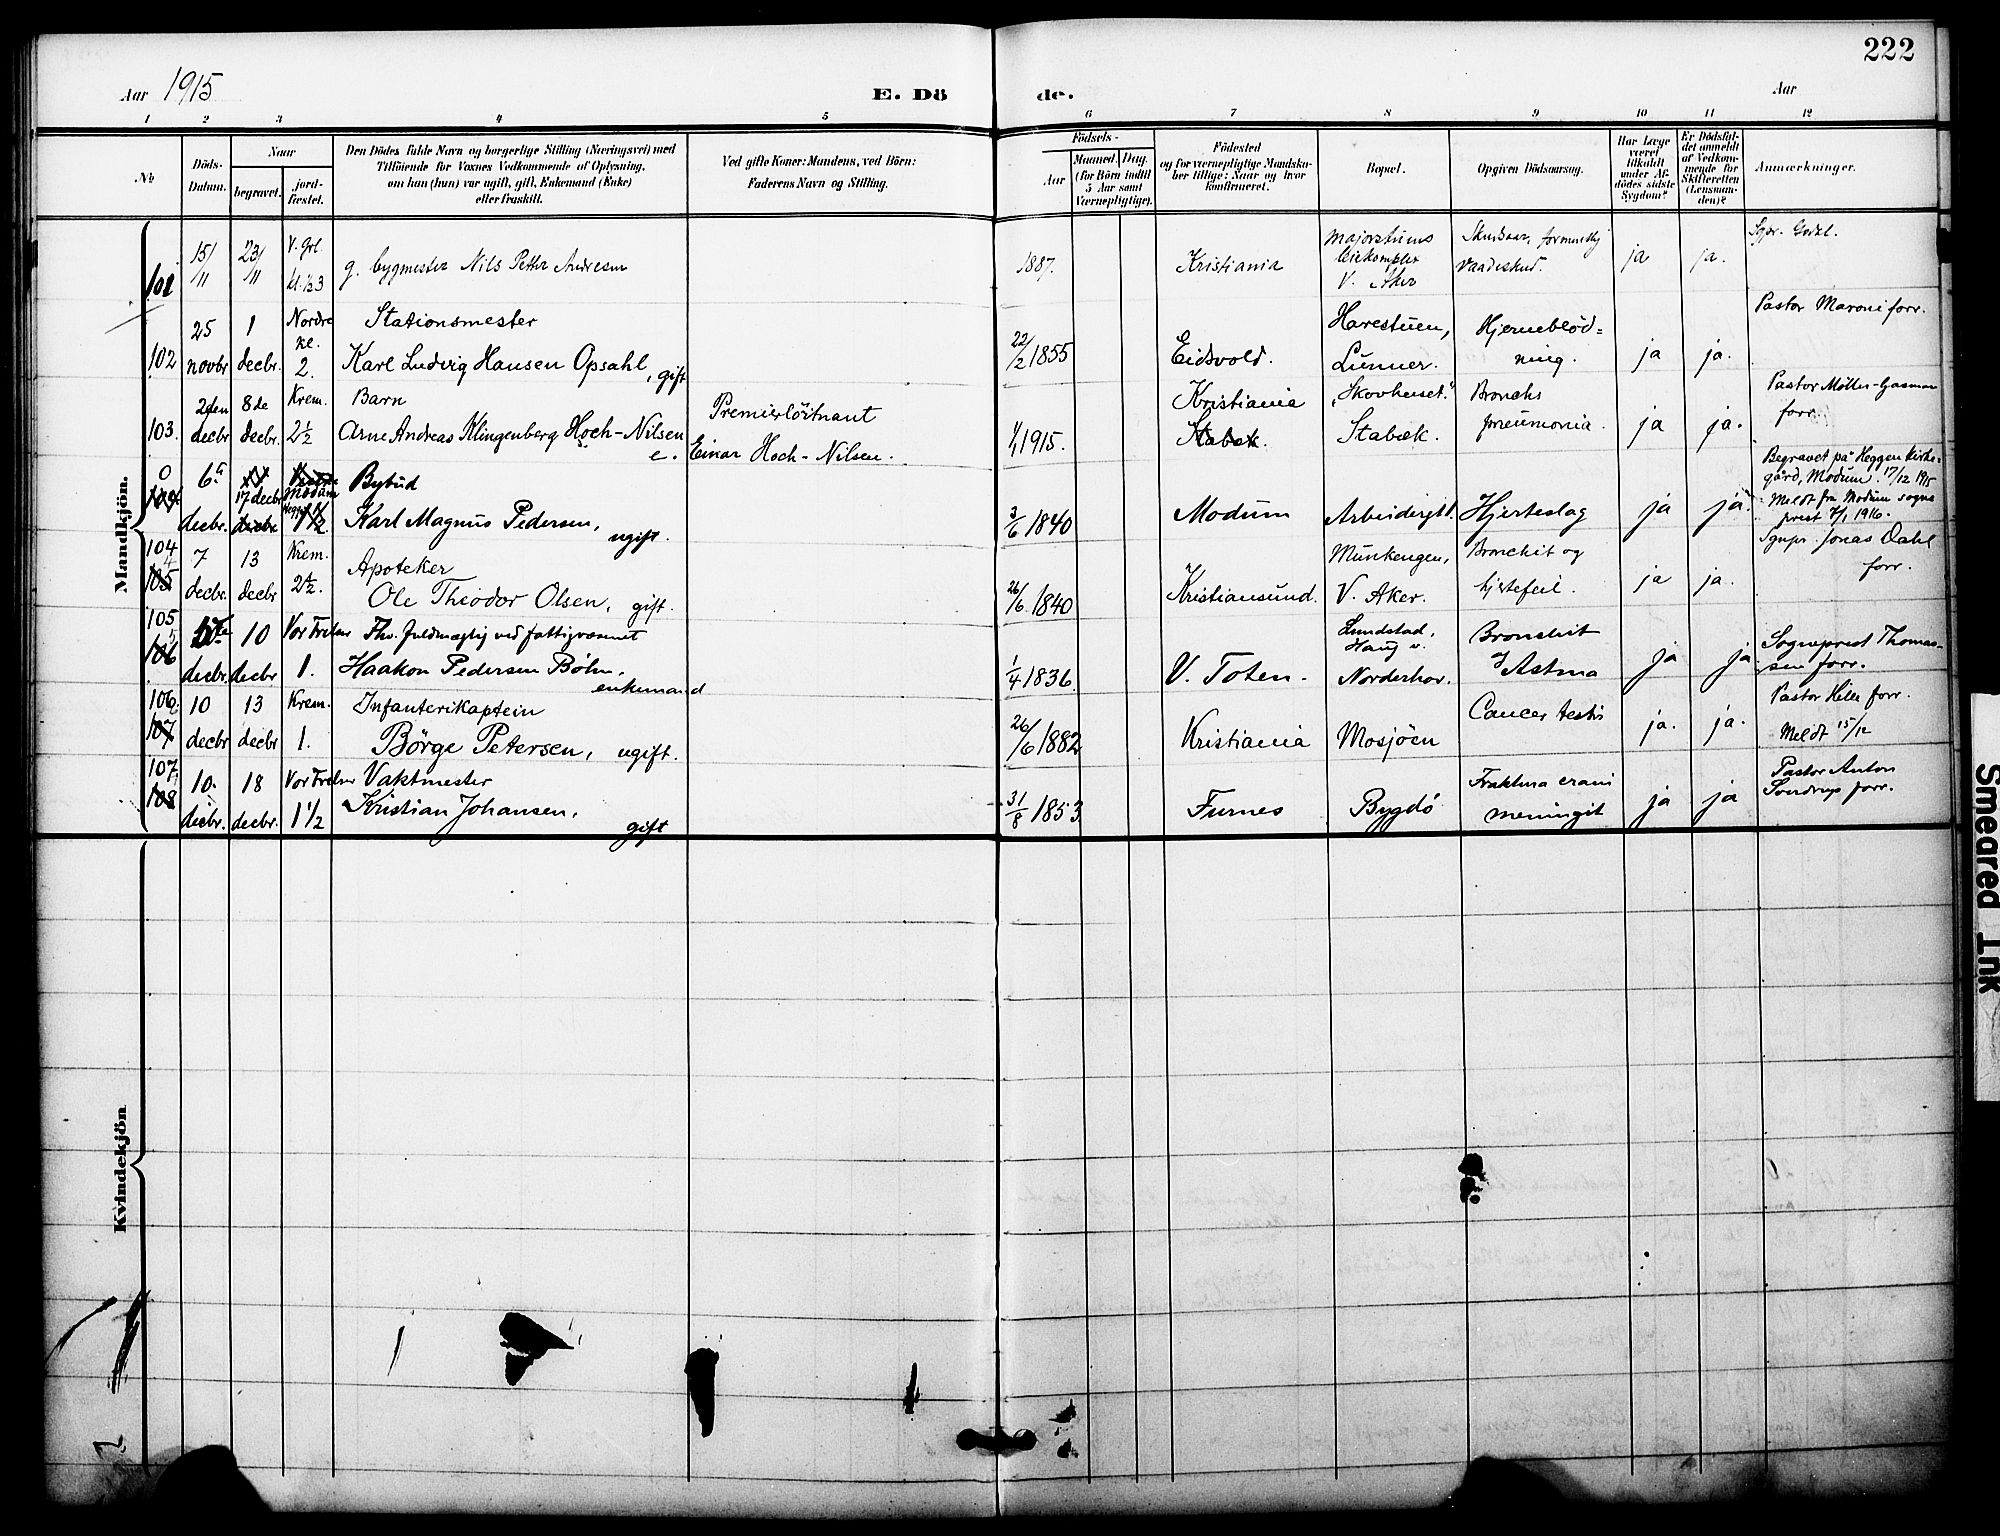 222
Aar 1915
E. Dö de.
Aar
1 2 3 4 5 6 7 8 9 10 11 12
№
Döds-Datum.
Naar
begravet.
jord-fæstet.
Den Dödes fulde Navn og borgerlige Stilling (Næringsvei) med
Tilföiende for Voxnes Vedkommende af Oplysning,
om han (hun) var ugift, gift, Enkemand (Enke)
eller fraskilt.
Ved gifte Koner: Mandens, ved Börn:
Faderens Navn og Stilling.
Födsels-
Aar
Maaned. Dag.
(for Börn indtil
5 Aar samt
Værnepligtige).
Födested
og for værnepligtige Mandska-
ber tillige: Naar og hvor
konfirmeret.
Bopæl.
Opgiven Dödsaarsag.
Har Læge
været
tilkaldt
under Af-
dödes sidste
Sygdom?
Er Dödsfal-
det anmeldt
af Vedkom-
mende for
Skifteretten
(Lensman-
den)?
Anmærkninger.
Mandkjön.
101 15/11 23/11 V. Grl. kl. 1/2 3
g. bygmester Nils Petter Andresen
1887. Kristiania
Majorstuens
V. Aker
Vaadeskud.
ja ja.
102 25 novbr 1 decbr. Nordre kl. 2.
Stationsmester
Karl Ludvig Hansen Opsahl, gift
22/2 1855 Eidsvold.
Harestuen,
Lunner.
Hjerneblöd=
ning.
ja ja.
Pastor Maroni forr.
103. 2den decbr 8de decbr. Krem. 2 1/2
Barn
Arne Andreas Klingenberg Hoch-Nilsen
e.
Premierlöitnant
Einar Hoch-Nilsen.
1/1 1915. Kristiania
Stabæk.
"Skovhuset"
Stabæk.
Broncho
pneumonia.
ja ja.
Pastor Möller-Gasman
forr.
0 104 6te decbr. 17 decbr decbr Modum 1 1/2
Bybud
Karl Magnus Pedersen, ugift.
3/6 1840 Modum
Hjerteslag
ja ja.
Begravet på Heggen kirke-
gård, Modum. 17/12 1915
Meldt fra Modum sogne
prest 7/1 1916.
104 105 7 decbr. 13 decbr Krem. 2 1/2.
Apoteker
Ole Theodor Olsen, gift.
26/6 1840 Kristiansund.
Munkengen,
V. Aker.
Bronchit og
hjertefeil.
ja ja.
Sgnpr. Jonas Dahl
forr.
105 106 decbr. 10 decbr. Vor Frelser 1.
Fhv. fuldmægtig ved fattigvæsenet
Haakon Pedersen Böhn,
enkemand
1/4 1836. V. Toten.
Lundstad,
Haug v.
Norderhov.
Bronchit
Astma
ja ja
Sogneprest Thomas-
sen forr.
106 107 10 decbr 13 decbr Krem. 1.
Infanterikaptein
Börge Petersen, ugift.
26/6 1882 Kristiania
Mosjöen
Cancer testis
ja. ja.
Pastor Hille forr.
Meldt 15/12
107 108 10. decbr. 18 decbr. Vor Frelser 1 1/2
Vaktmester
Kristian Johansen,
gift
31/8 1853 Furnes
Bygdö
Fraktura cranii
meningit
ja ja
Pastor Anton
Sverdrup forr.
Kvindekjön
Smeared Ink